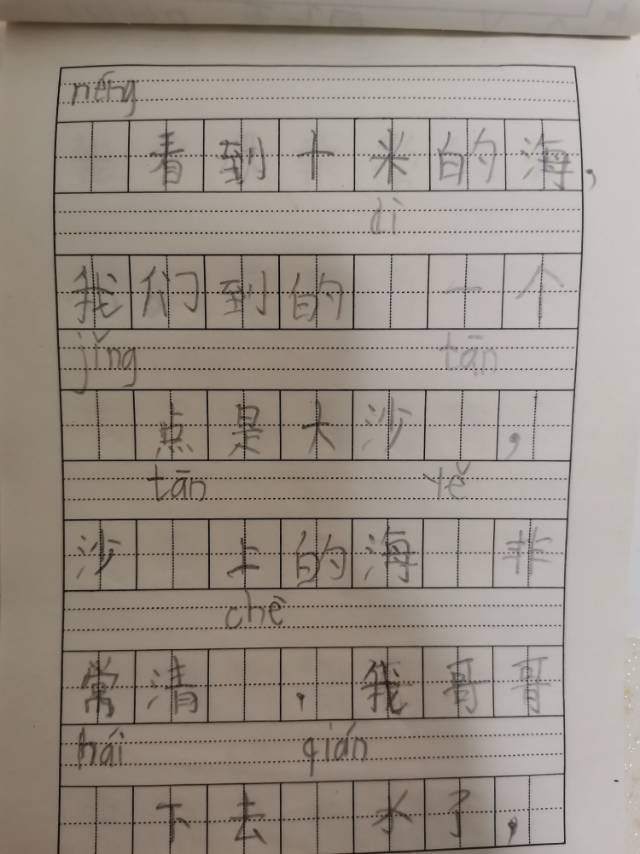 néng
看到十米的海,
dì
我们到的一个
jǐng tān
点是大沙,
tān yě
沙上的海非
chè
常清,我哥哥
hái qián
下去水了,